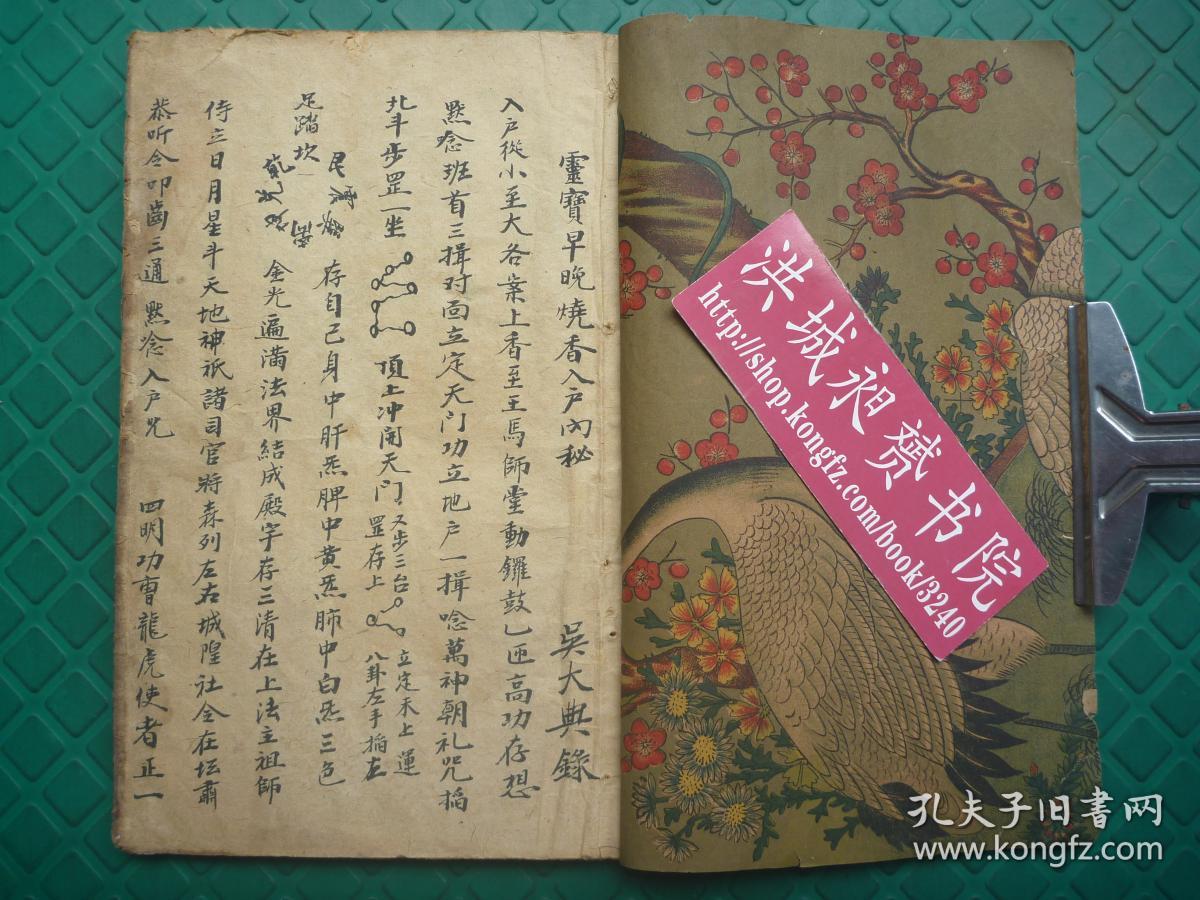 靈寶早晚燒香入戶內秘 吳大典錄
入戶從小至大各案上香至王馬師壇動鑼鼓乚匝高功存想
默念班首三揖对面立定天门功立地户一揖唸萬神朝礼咒掐
北斗步罡一坐 頂上冲開天门 又步三台罡存上 立定禾上運八卦左手掐左
足踏坎 存自己身中肝炁脾中黄炁肺中白炁三色
金光遍满法界結成殿宇存三清在上法主祖師
侍立日月星斗天地神祇諸司官将森列左右城隍社令在坛肅
恭听令叩齒三通 默念入戶咒 四明功曹龍虎使者正一
洪城昶赟书院
http://shop.kongfz.com/book/3240
孔夫子旧書网
www.kongfz.com